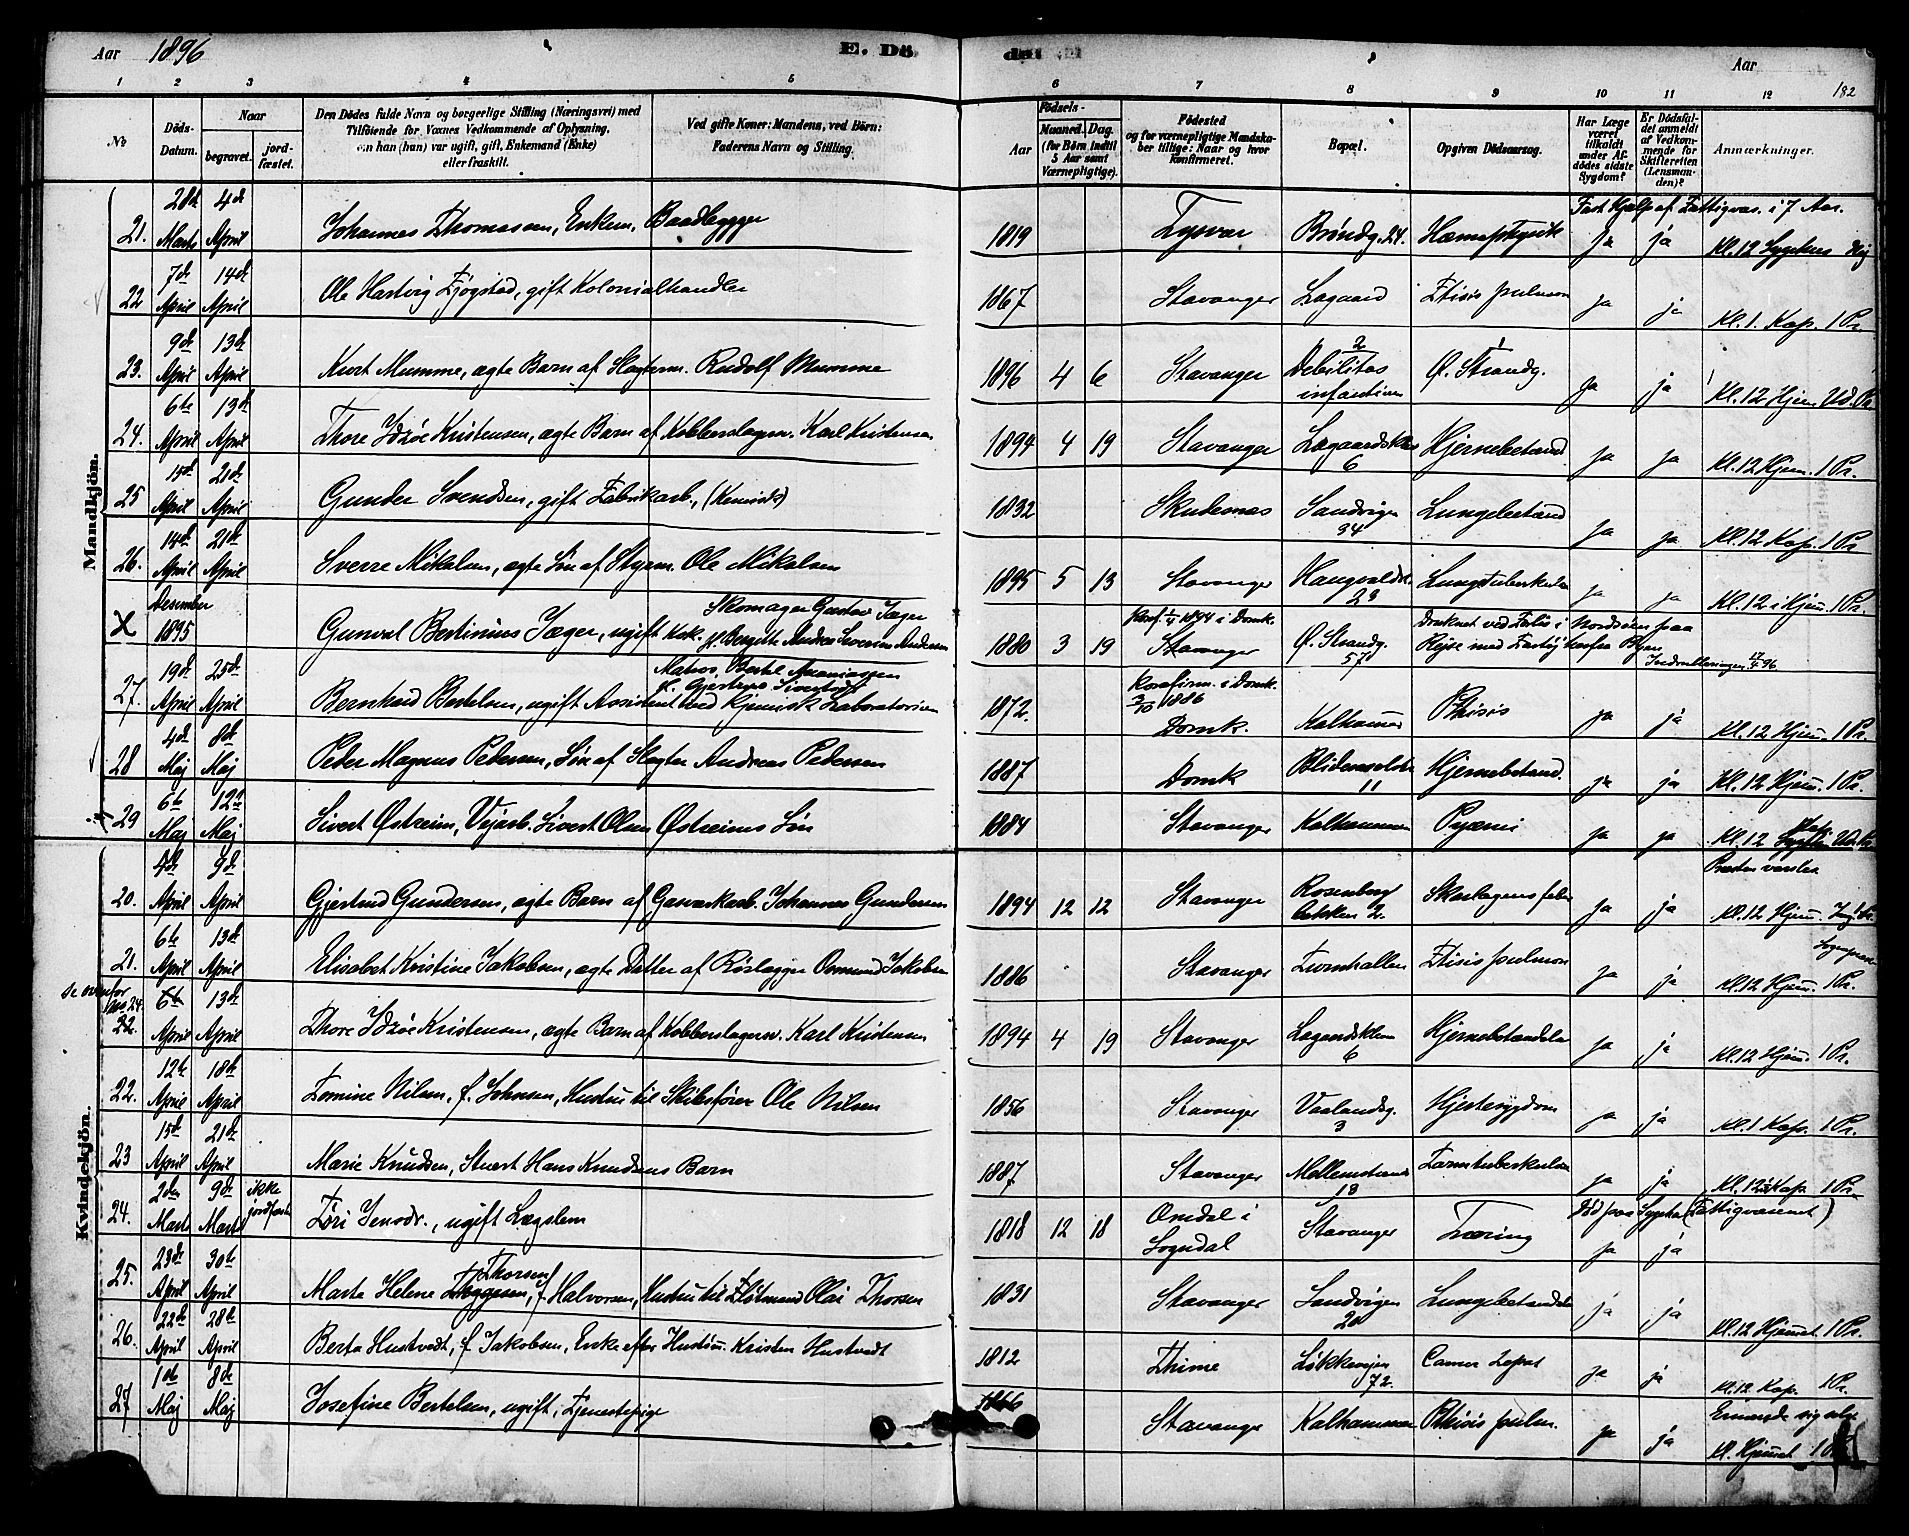 Aar 1896 E. Dö de. Aar
182
1 2 3 4 5 6 7 8 9 10 11 12
No Döds-Datum. Naar begravet. jord-fæstet. Den Dödes fulde Navn og borgerlige Stilling (Næringsvei) med Tilföiende for Voxnes Vedkommende af Oplysning, om han (hun) var ugift, gift, Enkemand (Enke) eller fraskilt. Ved gifte Koner: Mandens, ved Börn: Faderens Navn og Stilling. Födsels- Aar Maaned. Dag. (for Börn indtil 5 Aar samt Værnepligtige). Födested og for værnepligtige Mandskaber tillige: Naar og hvor konfirmeret. Bopæl. Opgiven Dödsaarsag. Har Læge været tilkaldt under Afdödes sidste Sygdom? Er Dödsfaldet anmeldt af Vedkommende for Skifteretten (Lensmanden)? Anmærkninger.
Mandkjön.
21. 28d Marts 4d April Johannes Thomassen, Enkem. Baadbygger 1819 Tysvær Brøndg. 24. Hæmoptysik ja ja Fast Hjælp af Fattigvæs. i 7 Aar. Kl. 12 Sygehus
22 7de April 14de April Ole Hartvig Fjøgstad, gift Kolonialhandler 1867 Stavanger Lagaard Ftisis pulmon ja ja Kl. 1. Kap. 1 Pr.
23. 9de April 13de April Kurt Mumme, ægte Barn af Slagterm. Rudolf Mumme 1896 4 6 Stavanger Debilitas infantium Ø. Strandg. ja ja Kl. 12 Hjem. Ud. Pr.
24. 6te April 13de April Thore Idsøe Kristensen, ægte Barn af Kobberslagersv. Karl Kristensen 1894 4 19 Stavanger Lagaards 6 Hjernebetænd ja ja Kl. 12 Hjem. 1 Pr.
25 15de April 21de April Gunder Svendsen, gift Fabrikarb., 1832 Skudenæs Sandvigen 34 Lungebetænd ja ja Kl. 12 Kap. 1 Pr
26. 14de April 21de April Sverre Mikalsen, ægte Søn af Styrm. Ole Mikalsen 1895 5 13 Stavanger Haugvaldst. 23 Lungtuberkulos ja ja Kl. 12 i Hjem. 1 Pr.
X Desember 1895 Gunval Bertinius Jæger, ugift Kok. Skomager Gustav Jæger H. Bergitte Andrea Severine Andersen 1880 3 19 Konf. 1894 i Domk. Stavanger Ø. Strandg. 57 Druknet ved Forlis i Nordsøen paa Rejse med Fartøj herfra Byen Indrulleringen 17/4 96
27. 19de April 25de April Bernhard Bertelsen, ugift Assistent ved Kjemisk Laboratorium Matros Bertel Ananiassen 1872. Konfirm. i Domk. 3/10 1886 Domk. Kalhammer Phisis ja ja Kl. 12 Hjem. 1 Pr.
28 4de Maj 8de Maj Peder Magnus Pedersen, Søn af Slagter Andreas Pedersen 1887 Domk 11 Hjernebetænd. ja ja Kl. 12 Hjem. 1 Pr.
29 6te Maj 12te Maj Sivert Østreim, Vejarb. Sivert Olsen Østreims Søn 1884 Stavanger Kalhammer Pyæmi ja ja Kl. 12
Kvindekjön.
20. 4de April 9de April Gjertrud Gundersen, ægte Barn af Gasværkarb. Johannes Gundersen 1894 12 12 Stavanger Rosenberg bakken 2. Skarlagensfeber ja ja Presten varsles Kl. 12 Hjem.
21. 6te April 13de April Elisabet Kristine Jakobsen, ægte Datter af Rørlægger Osmund Jakobsen 1886 Stavanger Turnhallen Ftisis pulmon ja ja Kl. 12 Hjem. 1 Pr.
se ovenfor No 24. 22. 6te April 13de April Thore Idsøe Kristensen, ægte Barn af Kobberslagersv. Karl Kristensen 1894 4 19 Stavanger 6 Hjernebetændelse ja ja Kl. 12 Hjem. 1 Pr.
22. 12te April 18de April Tomine Nilsen, f. Johnsen, Hustru til Skibsfører Ole Nilsen 1856 Stavanger Vaalandsg. 3 Hjertesygdom ja ja Kl. 1 Kap. 1 Pr.
23 15de April 21de April Marie Knudsen, Stuert Hans Knudsens Barn 1887 Stavanger Mellemstraede 13 Tarmtuberkulose ja ja Kl. 12 i Kap. 1 Pr.
24. 2den Marts 9de Marts ikke jordfæstet Tøri Jensdr., ugift Lægslem 1818 12 18 Omdal i Sogndal Stavanger Tæring ja ja Död paa Sygehus (Fattigvæsenet)
25. 23de April 30te April Marte Helene Thorsen, f. Halvorsen, Hustru til Fløtmand Olai Thorsen 1831 Stavanger Sandvigen 20 Lungebetændelse ja ja Kl. 12 Hjemmet 1 Pr.
26. 22de April 28de April Berta Hustvedt, f. Jakobsen, Enke efter Hustøm. Kristen Hustvedt 1812 Thime Løkkevejen 72. Cancer ja ja Kl. 12 Kap. 1 Pr.
27 1ste Maj 8de Maj Josefine Bertelsen, ugift, Tjenestepige 1866 Stavanger Kalhammer Phtisis pulm. ja ja Ernærede sig selv Kl. Hjemmet 1 Pr.